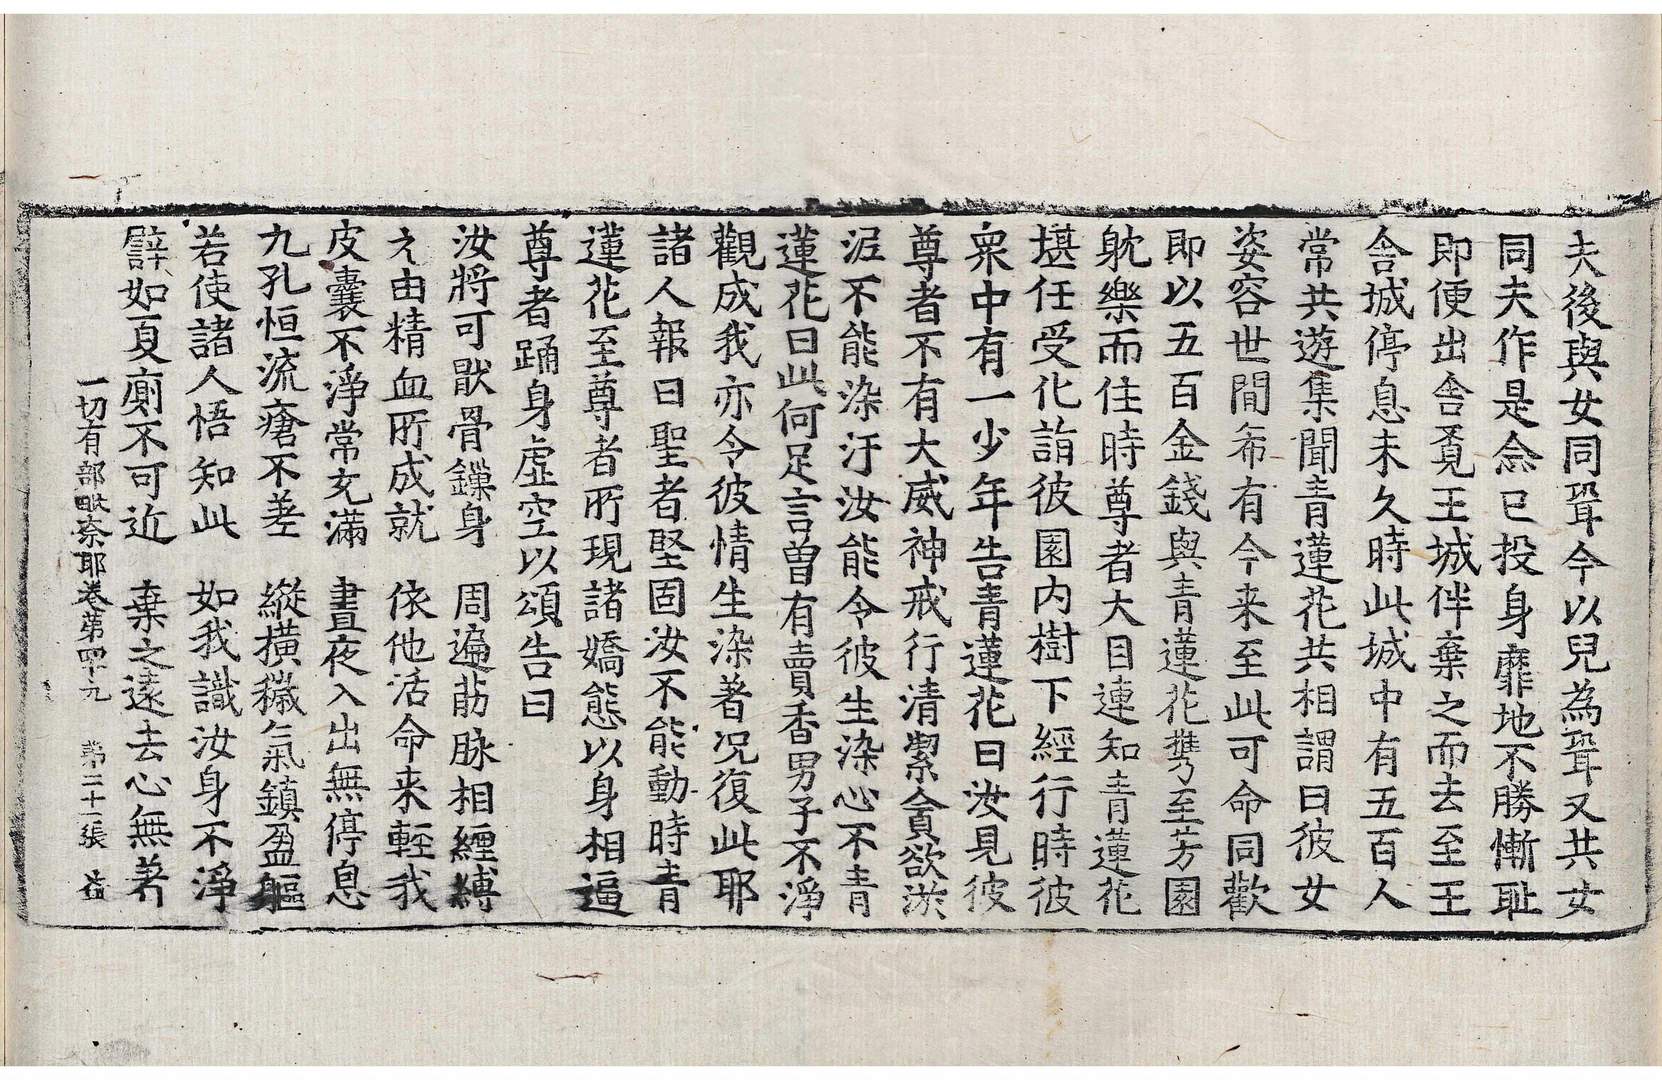 夫後與女同聟今以兒為聟又共女
同夫作是念已投身靡地不勝慚耻
即便出舍覓王城伴棄之而去至王
舍城停息未久時此城中有五百人
常共遊集聞青蓮花共相謂曰彼女
姿容世間希有今来至此可命同歡
即以五百金錢與青蓮花携至芳園
躭樂而住時尊者大目連知青蓮花
堪任受化詣彼園內樹下經行時彼
衆中有一少年告青蓮花曰汝見彼
尊者不有大威神戒行清潔貪欲淤
泥不能染汙汝能令彼生染心不青
蓮花曰此何足言曽有賣香男子不淨
觀成我亦令彼情生染著况復此耶
諸人報曰聖者堅固汝不能動時青
蓮花至尊者所現諸嬌態以身相逼
尊者踊身虛空以頌告曰
汝將可猒骨鏁身　周遍筋脉相纒縛
之由精血所成就　依他活命来輕我
皮囊不淨常充滿　晝夜入出無停息
九孔恒流瘡不差　縱橫穢氣鎮盈軀
若使諸人悟知此　如我識汝身不淨
譬如夏廁不可近　棄之遠去心無著
一切有部毗奈耶卷第四十九　第二十一張　益